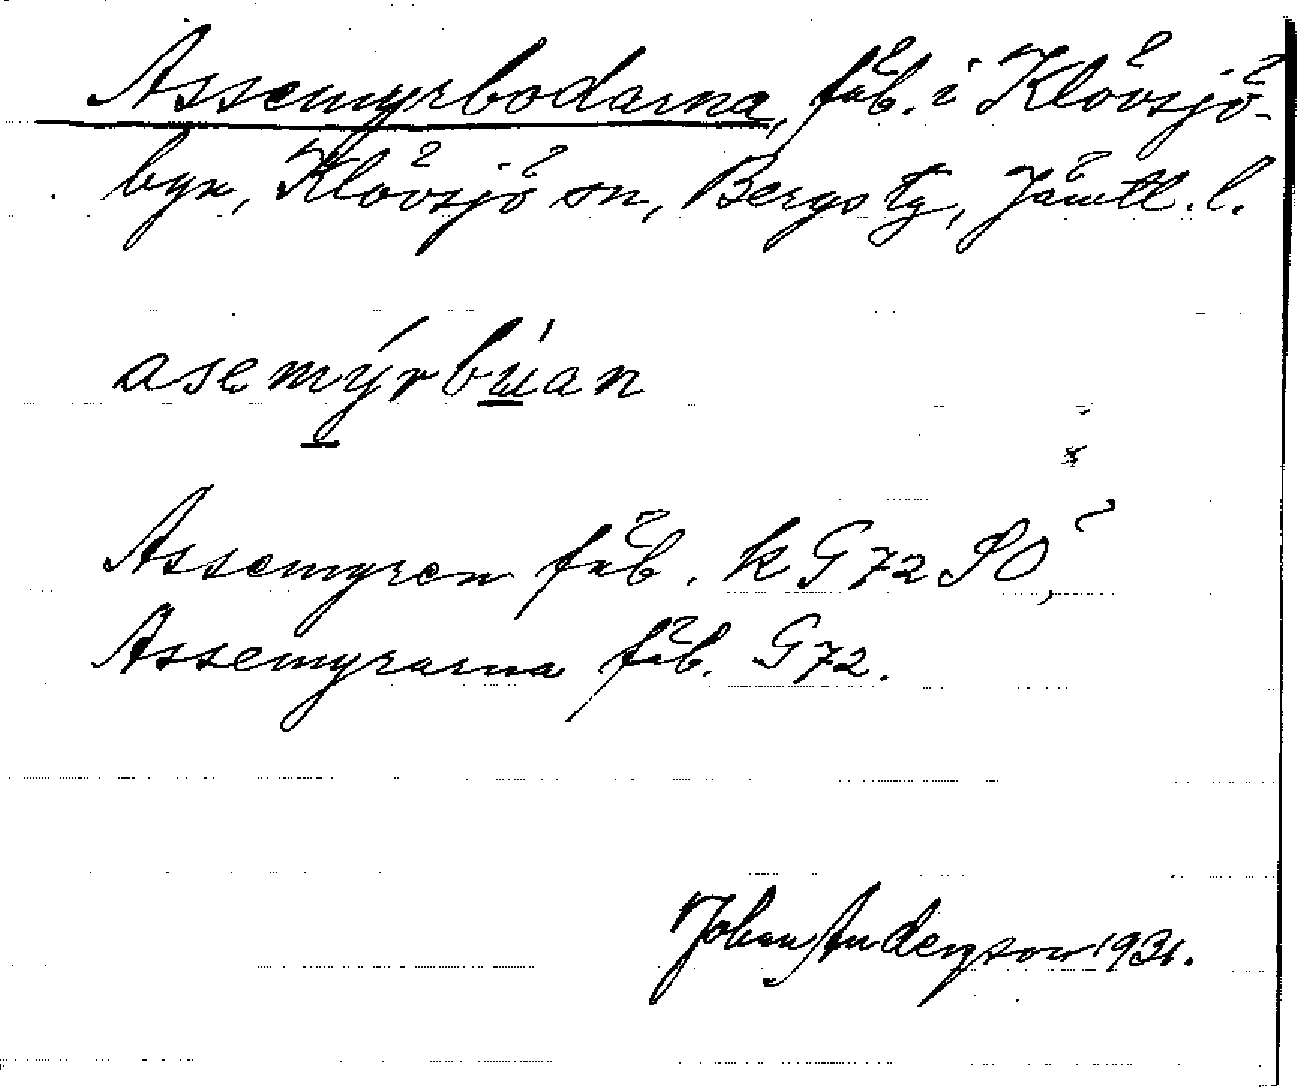 Assemyrbodarna, fäb. i Klövsjö-
byn, Klövsjö sn, Bergs tg, Jämtl. l.
asemýrbúan
Assemyren fäb. k G 72 SÖ,
Assemyrarna fäb. G 72.
Johan Anderzson 1931.